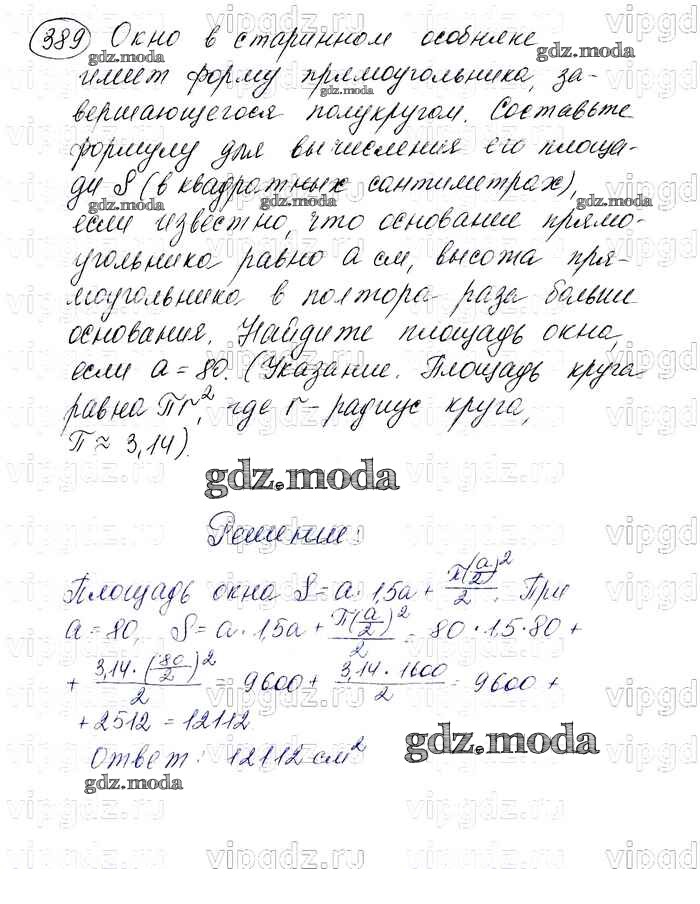 389 Окно в старинном особняке
имеет форму прямоугольника, за-
вершающегося полукругом. Составьте
формулу для вычисления его площа-
ди S (в квадратных сантиметрах),
если известно, что основание прямо-
угольника равно a см, высота пря-
моугольника в полтора раза больше
основания. Найдите площадь окна,
если a = 80. (Указание. Площадь круга
равна πr², где r – радиус круга,
π ≈ 3,14).
gdz.moda
Решение:
Площадь окна S = a · 1,5a + π(a/2)²/2. При
a = 80, S = a · 1,5a + π(a/2)²/2 = 80 · 1,5 · 80 +
+ 3,14 · (80/2)²/2 = 9600 + 3,14 · 1600/2 = 9600 +
+ 2512 = 12112.
Ответ: 12112 см²
gdz.moda
gdz.moda